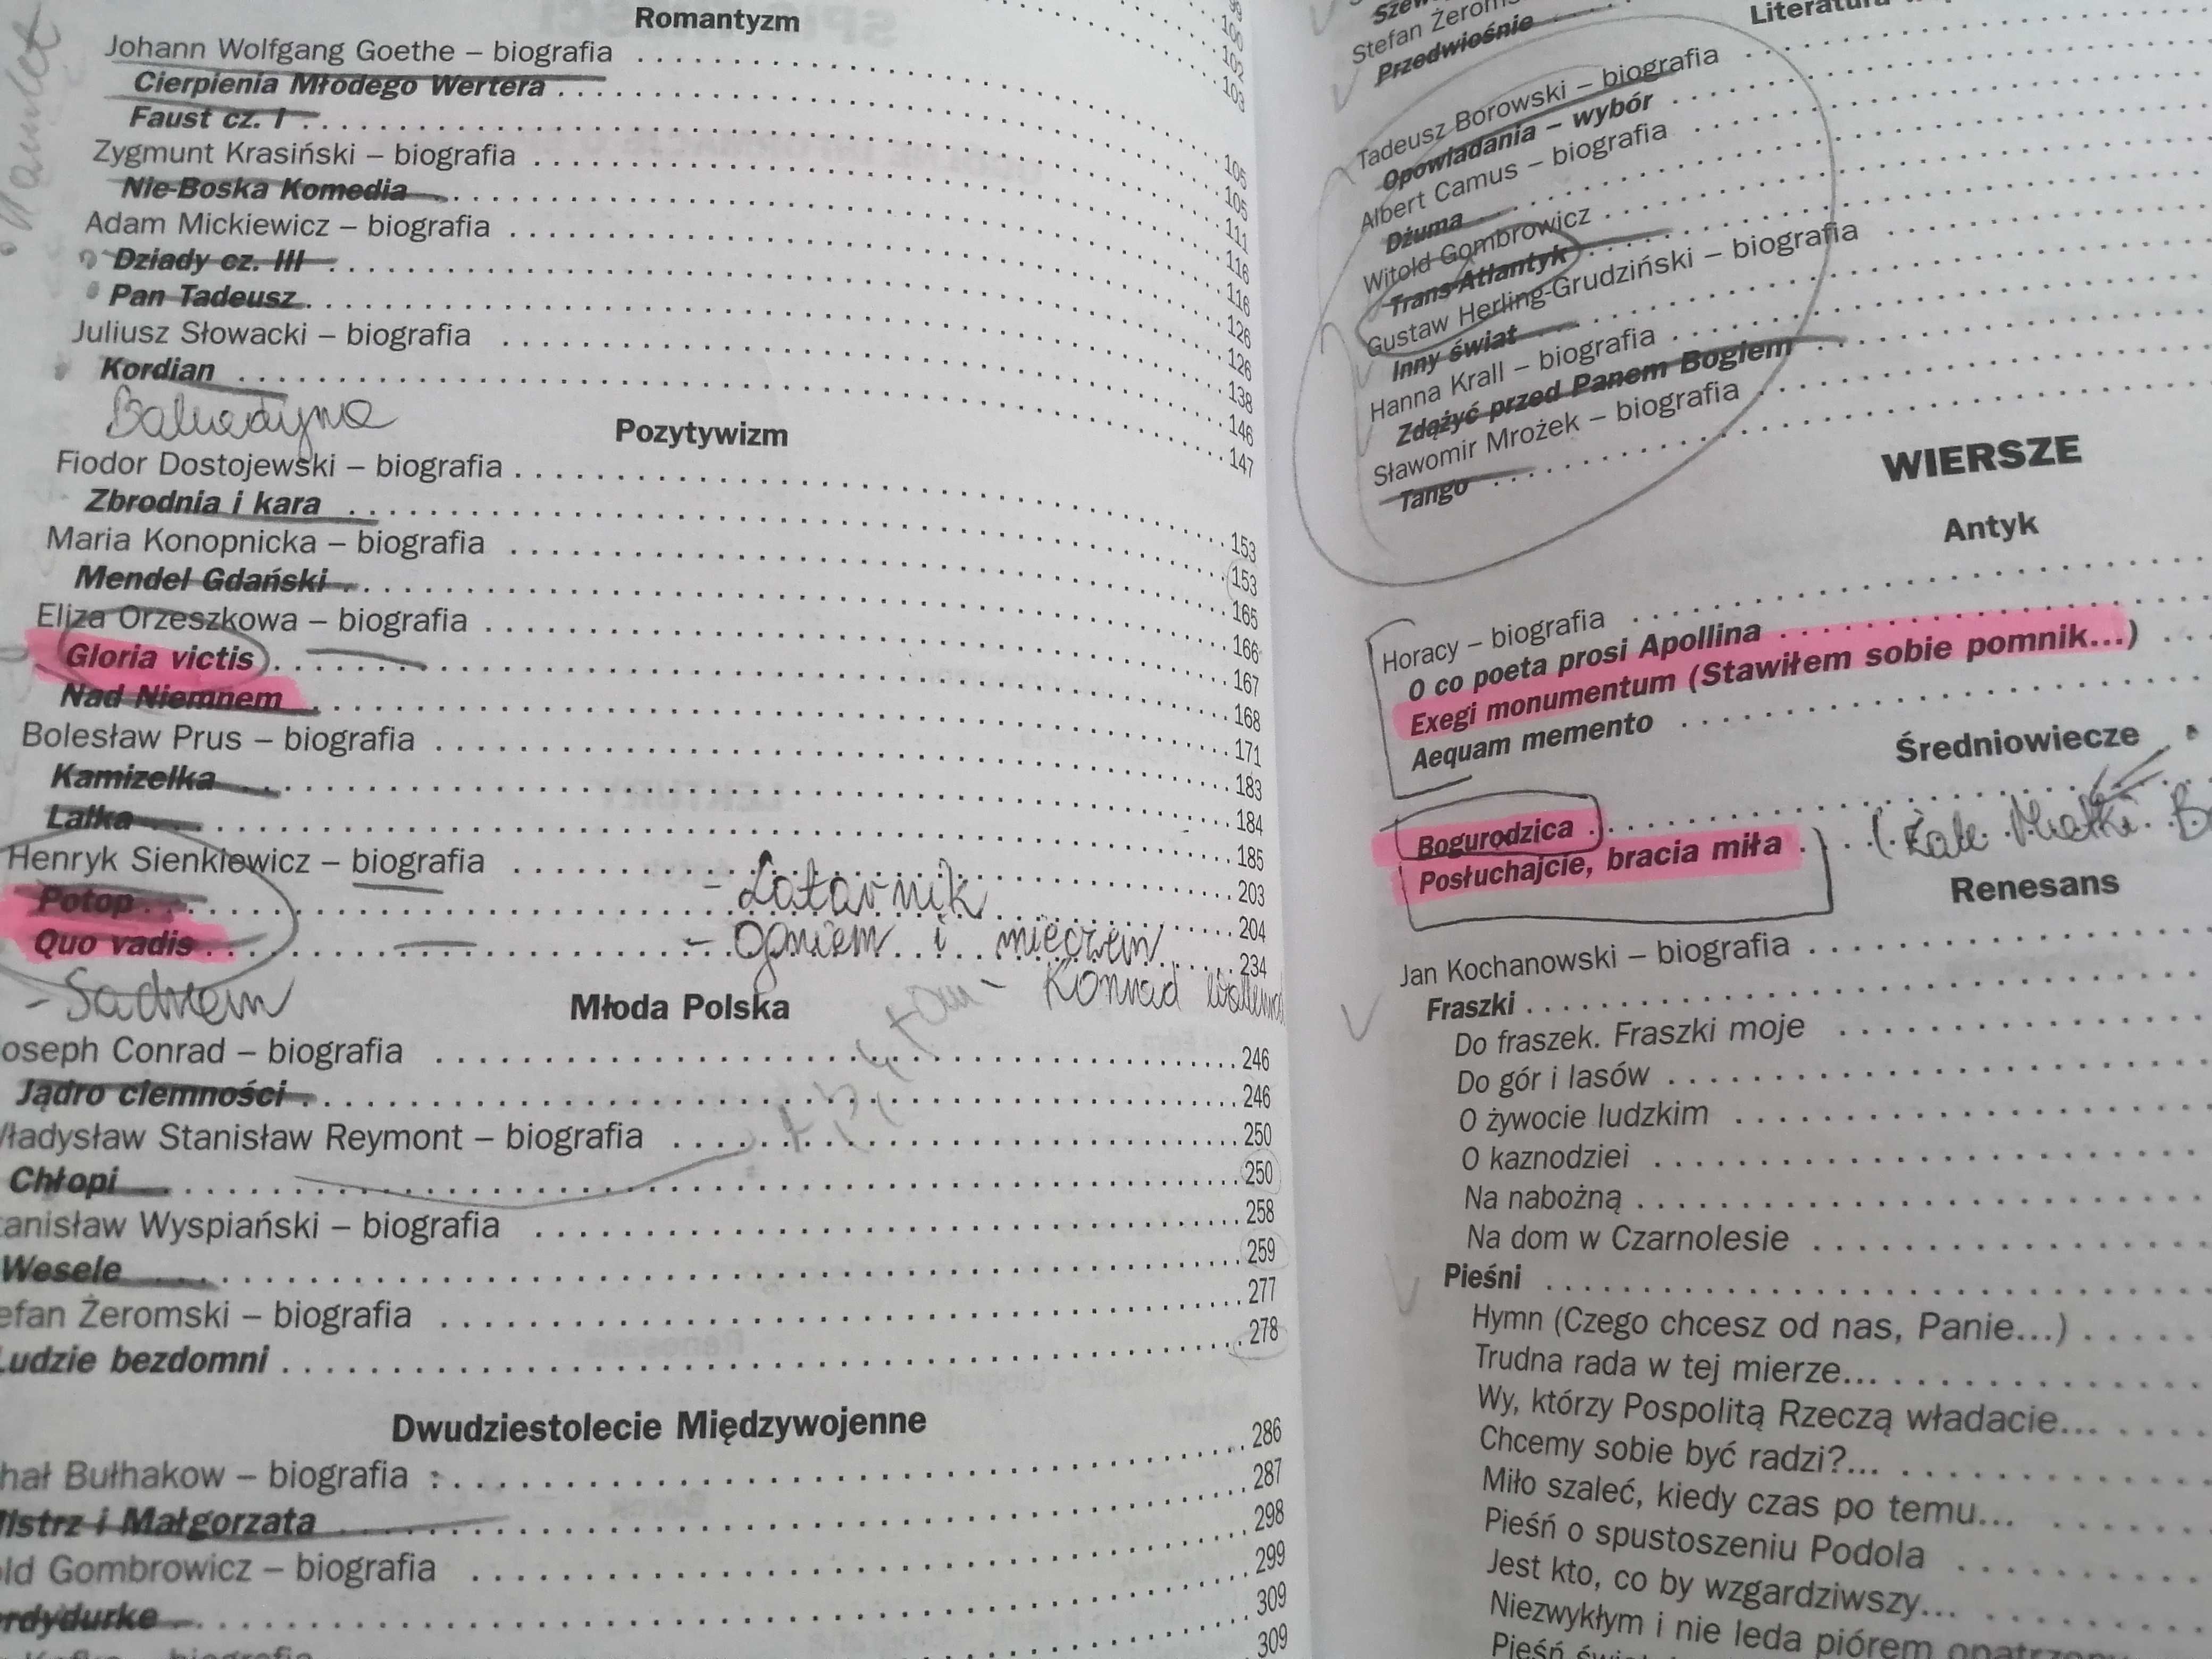 Hamlet
Romantyzm
Johann Wolfgang Goethe – biografia
Cierpienia Młodego Wertera
103
Faust cz. I
105
Zygmunt Krasiński – biografia
105
Nie-Boska Komedia
111
Adam Mickiewicz – biografia
116
Dziady cz. III
116
Pan Tadeusz
126
Juliusz Słowacki – biografia
126
138
Kordian
146
147
Balladyna
Pozytywizm
Fiodor Dostojewski – biografia
153
Zbrodnia i kara
153
Maria Konopnicka – biografia
165
Mendel Gdański
166
Eliza Orzeszkowa – biografia
167
Gloria victis
168
Nad Niemnem
171
Bolesław Prus – biografia
183
Kamizelka
184
Lalka
185
Henryk Sienkiewicz – biografia
203
Potop
204
Quo vadis
234
- Latarnik
- Ogniem i mieczem
- Sachem
- Konrad
Młoda Polska
oseph Conrad – biografia
246
Jądro ciemności
246
ładysław Stanisław Reymont – biografia
250
Chłopi
250
anisław Wyspiański – biografia
258
Wesele
259
efan Żeromski – biografia
277
Ludzie bezdomni
278
Dwudziestolecie Międzywojenne
hał Bułhakow – biografia
286
istrz i Małgorzata
287
298
old Gombrowicz – biografia
299
rdydurke
309
309
Stefan Żeroms
Przedwiośnie
Literatura
Tadeusz Borowski – biografia
Opowiadania – wybór
Albert Camus – biografia
Dżuma
Witold Gombrowicz
Trans-Atlantyk
Gustaw Herling-Grudziński – biografia
Inny świat
Hanna Krall – biografia
Zdążyć przed Panem Bogiem
Sławomir Mrożek – biografia
Tango
WIERSZE
Antyk
Horacy – biografia
O co poeta prosi Apollina
Exegi monumentum (Stawiłem sobie pomnik...)
Aequam memento
Średniowiecze
Bogurodzica
Posłuchajcie, bracia miła
(Żale Matki B
Renesans
Jan Kochanowski – biografia
Fraszki
Do fraszek. Fraszki moje
Do gór i lasów
O żywocie ludzkim
O kaznodziei
Na nabożną
Na dom w Czarnolesie
Pieśni
Hymn (Czego chcesz od nas, Panie...)
Trudna rada w tej mierze...
Wy, którzy Pospolitą Rzeczą władacie...
Chcemy sobie być radzi?...
Miło szaleć, kiedy czas po temu...
Pieśń o spustoszeniu Podola
Jest kto, co by wzgardziwszy...
Niezwykłym i nie leda piórem opatrzony
Pieśń